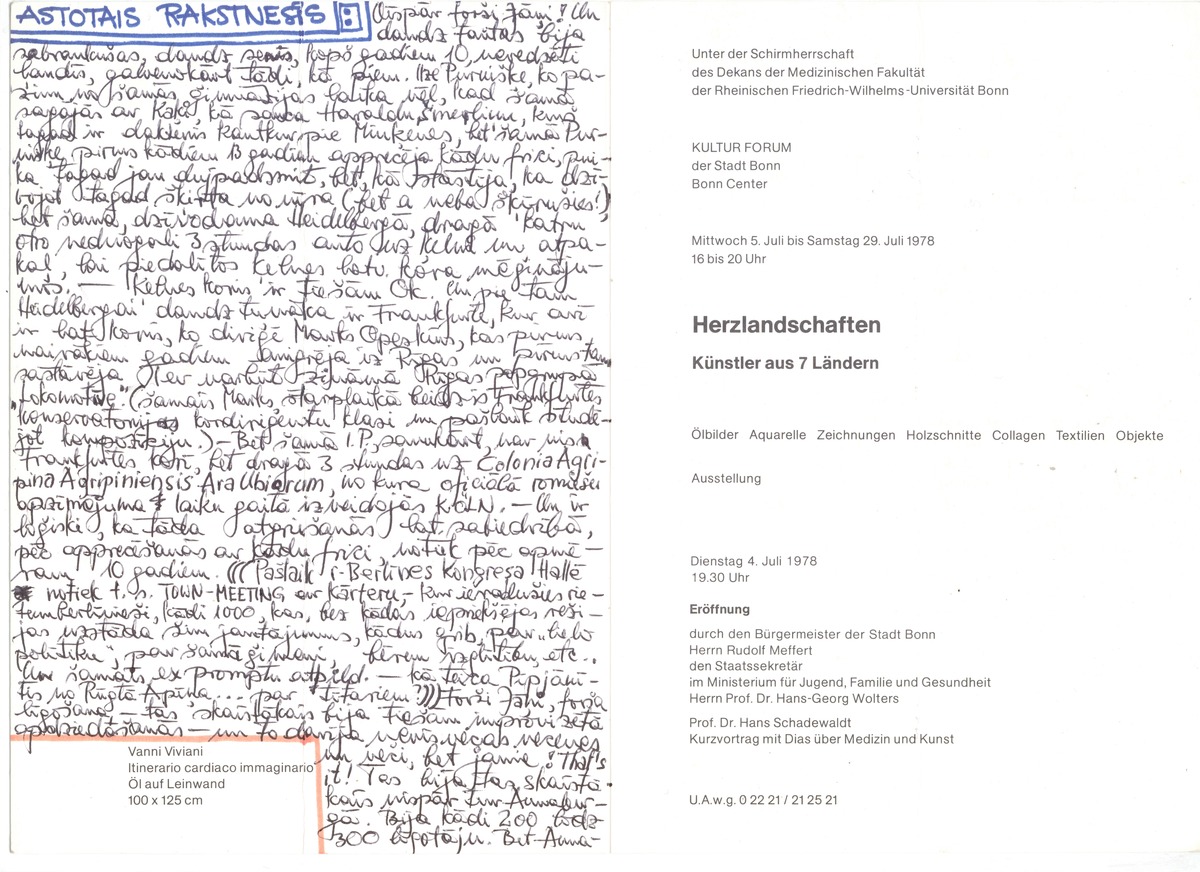 ASTOTAIS RAKSTNESIS :
Vispār forši Jāņi! Un
daudz tautas bija
sabraukušas, daudz senis, kopš gadiem 10, neredzēti
ļaudis, galvenokārt tādi, kā piem. Ilze Purmiške, ko pa-
zinu no šamās ģimnāzijas laika vēl, kad šamā
sagājās ar Kaķi, kā sauca Haraldu, kuŗš
tagad ir dakteris kautkur pie Minkenes, bet šamā Pur-
miške, pirms kādiem 13 gadiem apprecēja kādu frici, pui-
ka tagad jau divpadsmit, bet, kā stāstīja, ka dzī-
vojot tagad šķirta no vīŗa (bet a neba šķīrusies!)
bet šamā, dzīvodama Heidelbergā, draņā katru
otro nedēļas galu 3 stundas auto uz Ķelni un atpa-
kaļ, lai piedalītos Ķelnes latv. kora mēģināju-
mos. — Ķelnes koris ir tiešām OK. Un pie tam
Heidelbergai daudz tuvāka ir Frankfurte, kur arī
ir latv. koris, ko diriģē Marks Opeskins, kas pirms
vairākiem gadiem emigrēja iz Rīgas un pirms tam
sastāvēja Tev varbūt zināmā Rīgas popgrupā
"Lokomotive". (Šamais Marks starplaikā beidzis Frankfurtes
konservatorijas kordiriģentu klasi un pašlaik studē-
jot kompozīciju.) — Bet šamā I.P., savukārt, nav visa
Frankfurtes korī, bet draņā 3 stundas uz Colonia Agri-
pina Agripiniensis Ara Ubiorum, no kura oficiālā romiešu
apzīmējuma laiku gaitā izveidojās KÖLN. — Un ir
loģiski, ka tāda atgriešanās latv. sabiedrībā,
pēc apprecēšanās ar kādu frici, notiek pēc apmē-
ram 10 gadiem. (((Pašlaik i-Berlīnes Kongresa! Hallē
notiek t.s. TOWN-MEETING ar Kārteru, — kur ieradušies rie-
tumberlīnieši, kādi 1000, kas, bez kādas iepriekšējas reži-
jas uzstāda šim jautājumus, kādus grib, par "lielo
politiku", par šamā ģimeni, bērnu izglītību, etc..
Un šamais ex promptu atbild. — kā teica Pipjāni-
tis no Rūgtā Apiņa... par "tatariem")))) Forši Jāņi, forša
līgošana — tas skaistākais bija tiešām improvizētā
apdziedāšanās — un to darīja nevis vecas vecenes
un veči, bet jaunie! That's
it! Tas bija tas skaistā-
kais vispār tur Annabur-
gā. Bija kādi 200 līdz
300 līgotāju. Bet Anna-
Vanni Viviani
Itinerario cardiaco immaginario
Öl auf Leinwand
100 x 125 cm
Unter der Schirmherrschaft
des Dekans der Medizinischen Fakultät
der Rheinischen Friedrich-Wilhelms-Universität Bonn
KULTUR FORUM
der Stadt Bonn
Bonn Center
Mittwoch 5. Juli bis Samstag 29. Juli 1978
16 bis 20 Uhr
Herzlandschaften
Künstler aus 7 Ländern
Ölbilder Aquarelle Zeichnungen Holzschnitte Collagen Textilien Objekte
Ausstellung
Dienstag 4. Juli 1978
19.30 Uhr
Eröffnung
durch den Bürgermeister der Stadt Bonn
Herrn Rudolf Meffert
den Staatssekretär
im Ministerium für Jugend, Familie und Gesundheit
Herrn Prof. Dr. Hans-Georg Wolters
Prof. Dr. Hans Schadewaldt
Kurzvortrag mit Dias über Medizin und Kunst
U.A.w.g. 0 22 21 / 21 25 21